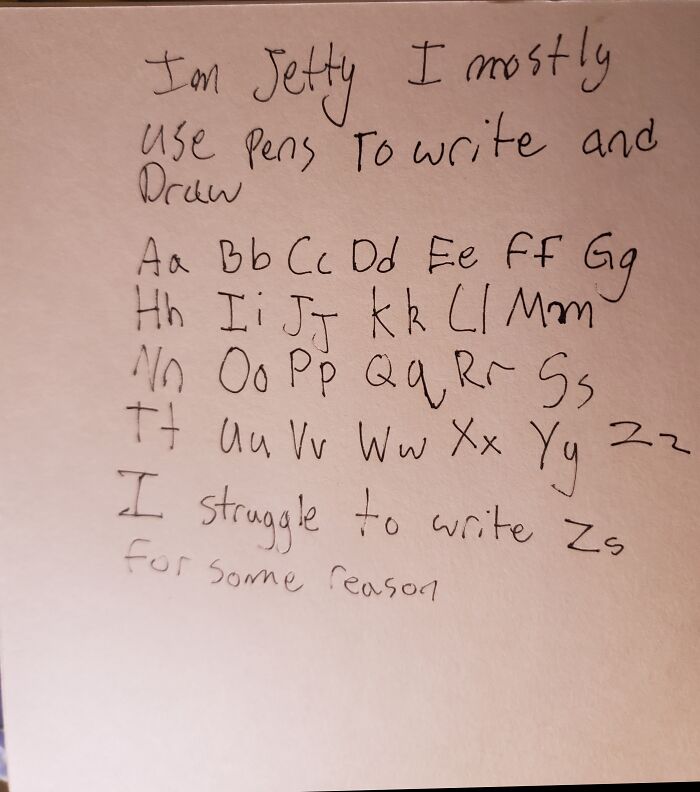 Im Jetty I mostly
use Pens To write and
Draw
Aa Bb Cc Dd Ee Ff Gg
Hh Ii Jj Kk Ll Mm
Nn Oo Pp Qq Rr Ss
Tt Uu Vv Ww Xx Yy Zz
I struggle to write Zs
for some reason